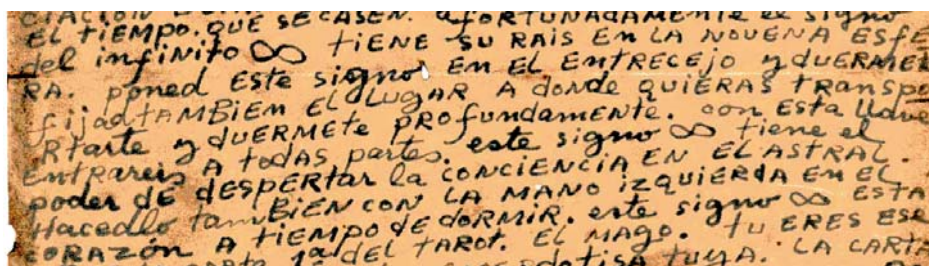 CIACION
EL tiEMPO. QUE SE CASEN. afORTUNADAMENTE EL signo
del infinito ∞ tiENE SU RAIS EN LA NOVENA ESFE
RA. poned EStE signo EN EL ENTRECEJO y DUERMET
fijad TAMBIEN EL LUGAR A donde QUIERAS TRANSpo
RTarte y DUERMEte PROfundamente. con ESta llave
ENtRAREIS A todas partes. este signo ∞ tiene el
poder de DESPERtar la CONCIENCIA EN EL ASTRAL.
Hacedlo tamBIEN CON LA MANO izquierda EN EL
CORAZÓN A tiEMPO DE DORMIR. este signo ∞ ESTA
1a DEL tAROt. EL MAGO. tU ERES ESE
tuya. LA CARTA